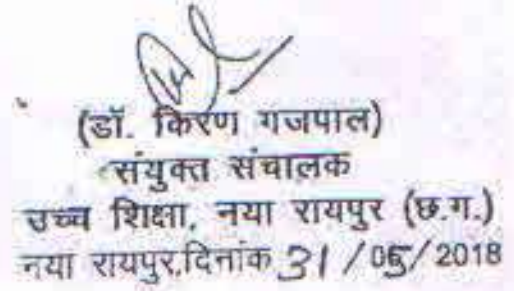 (डॉ. किरण गजपाल)
संयुक्त संचालक
उच्च शिक्षा, नया रायपुर (छ.ग.)
नया रायपुर,दिनांक 31/05/2018